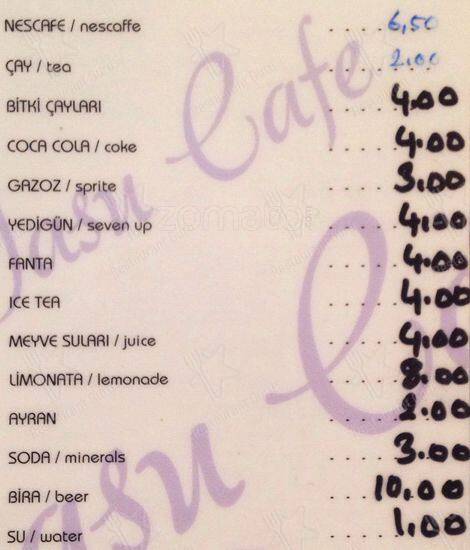 NESCAFE / nescaffe ..... 6,50
ÇAY / tea ..... 2.00
BİTKİ ÇAYLARI ..... 4.00
COCA COLA / coke ..... 4.00
GAZOZ / sprite ..... 3.00
YEDİGÜN / seven up ..... 4.00
FANTA ..... 4.00
ICE TEA ..... 4.00
MEYVE SULARI / juice ..... 4.00
LİMONATA / lemonade ..... 8.00
AYRAN ..... 2.00
SODA / minerals ..... 3.00
BİRA / beer ..... 10.00
SU / water ..... 1.00
Cafe
zomato